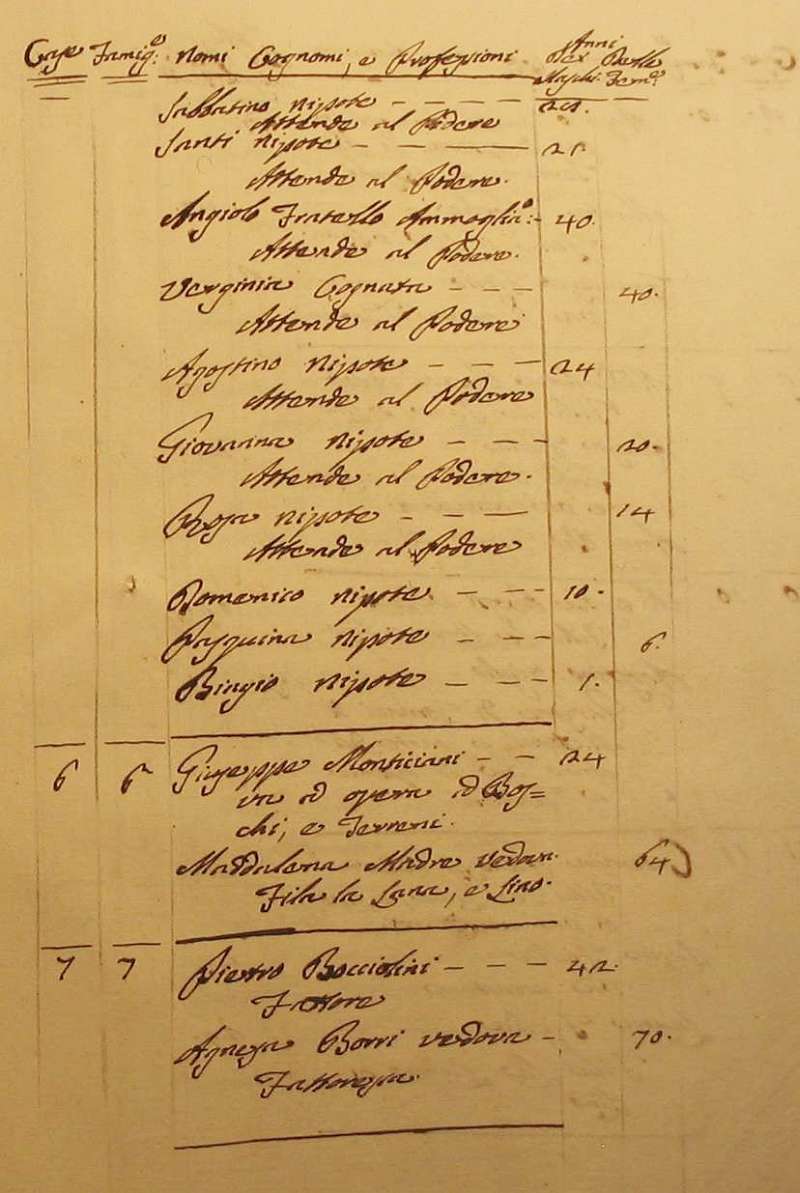 Case Famig.e Nomi Cognomi, e Professioni Anni
Dei Delle
Maschi. Fem.e
Sabbatino nipote - - - -
Attende al Podere
Santi nipote - - - 21.
Attende al Podere.
Angiolo Fratello Ammoglia.o: - 40.
Attende al Podere.
Verginia Cognata - - - 40.
Attende al Podere
Agostino nipote - - - 24
Attende al Podere
Giovanna nipote - - - 20.
Attende al Podere.
Rosa nipote - - - 14
Attende al Podere
Domenico nipote - - - 10.
Pasquina nipote - - - 6.
Biagio nipote - - - 1.
6 6 Giuseppe Monticiani - - 24
va ad opera ad Bos=
chi, e Terreni.
Maddalena Madre vedova. 64
Fila la Lana, e Lino.
7 7 Pietro Bocciolini - - - 42.
Fattore
Agnesa Borri vedova - 70.
Fattoressa.